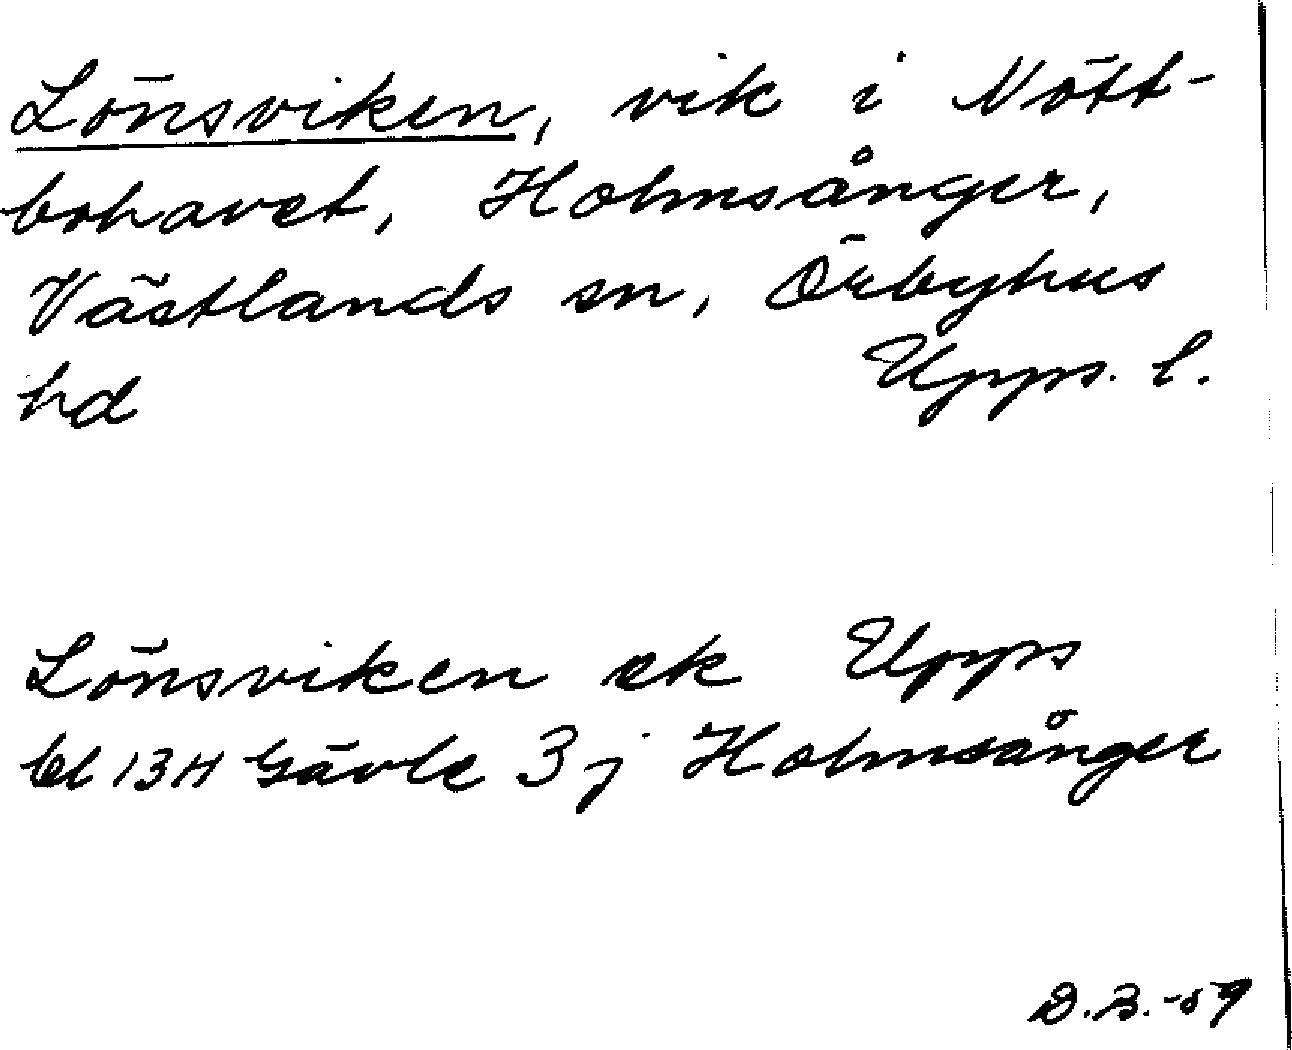 Lönsviken, vik i Nött-
bohavet, Holmsånger,
Västlands sn, Örbyhus
hd Upps. l.
Lönsviken ek Upps
bl 13H Gävle 3j Holmsånger
D.B.-59